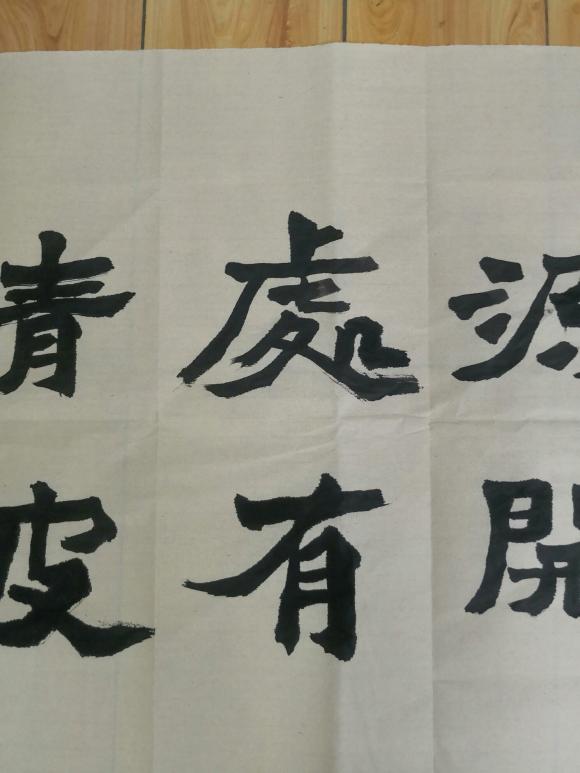 源開
處有
青皮